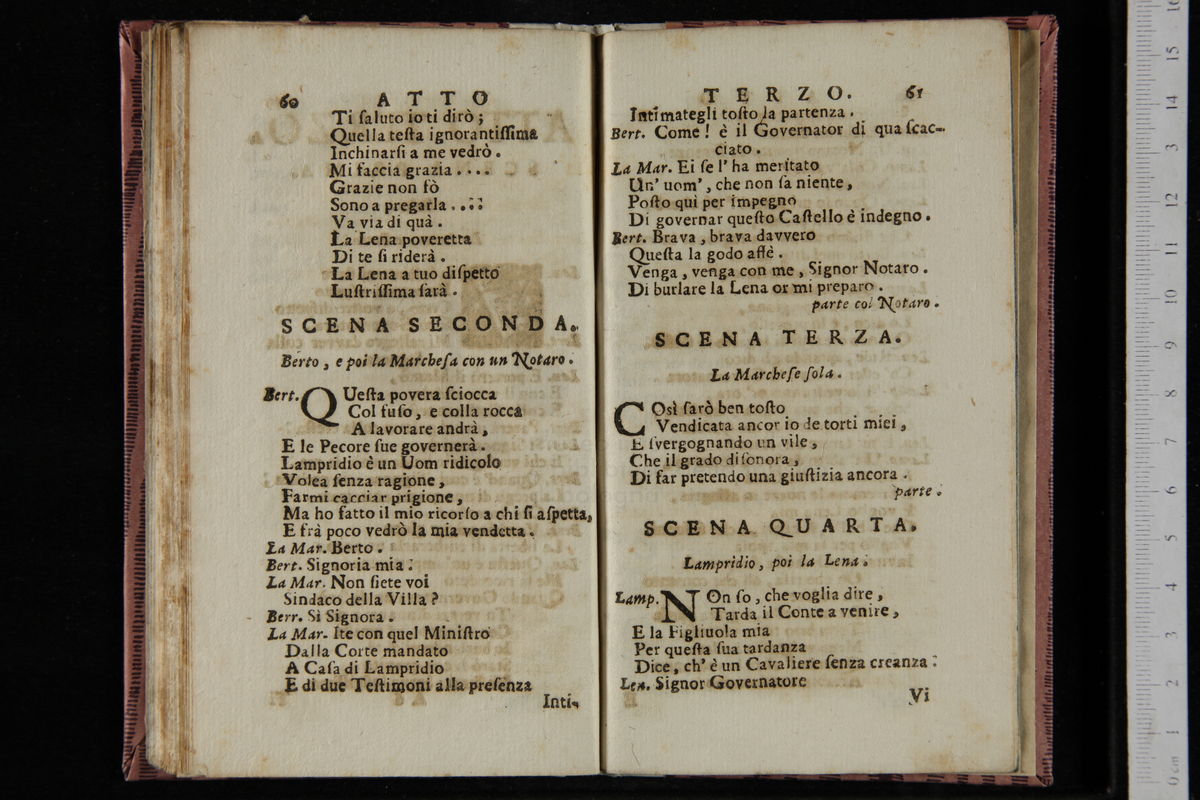 60 ATTO
Ti ſaluto io ti dirò;
Quella teſta ignorantiſſima
Inchinarſi a me vedrò.
Mi faccia grazia....
Grazie non fò
Sono a pregarla....
Va via di quà.
La Lena poveretta
Di te ſi riderà.
La Lena a tuo diſpetto
Luſtriſſima ſarà.
SCENA SECONDA.
Berto, e poi la Marcheſa con un Notaro.
Bert. QUeſta povera ſciocca
Col fuſo, e colla rocca
A lavorare andrà,
E le Pecore ſue governerà.
Lampridio è un Uom ridicolo
Volea ſenza ragione,
Farmi cacciar prigione,
Ma ho fatto il mio ricorſo a chi ſi aſpetta,
E frà poco vedrò la mia vendetta.
La Mar. Berto.
Bert. Signoria mia:
La Mar. Non ſiete voi
Sindaco della Villa?
Berr. Sì Signora.
La Mar. Ite con quel Miniſtro
Dalla Corte mandato
A Caſa di Lampridio
E di due Teſtimoni alla preſenza
Inti-
TERZO. 61
Intimategli toſto la partenza.
Bert. Come! è il Governator di qua ſcac-
ciato.
La Mar. Ei ſe l' ha meritato
Un' uom', che non ſa niente,
Poſto quì per impegno
Di governar queſto Caſtello è indegno.
Bert. Brava, brava davvero
Queſta la godo affè.
Venga, venga con me, Signor Notaro.
Di burlare la Lena or mi preparo.
parte col Notaro.
SCENA TERZA.
La Marcheſe ſola.
COsì farò ben toſto
Vendicata ancor io de torti miei,
E ſvergognando un vile,
Che il grado diſonora,
Di far pretendo una giuſtizia ancora.
parte.
SCENA QUARTA.
Lampridio, poi la Lena.
Lamp. NOn ſo, che voglia dire,
Tarda il Conte a venire,
E la Figliuola mia
Per queſta ſua tardanza
Dice, ch' è un Cavaliere ſenza creanza:
Len. Signor Governatore
Vi
16
15
14
13
12
11
10
9
8
7
6
5
4
3
2
1
0 cm